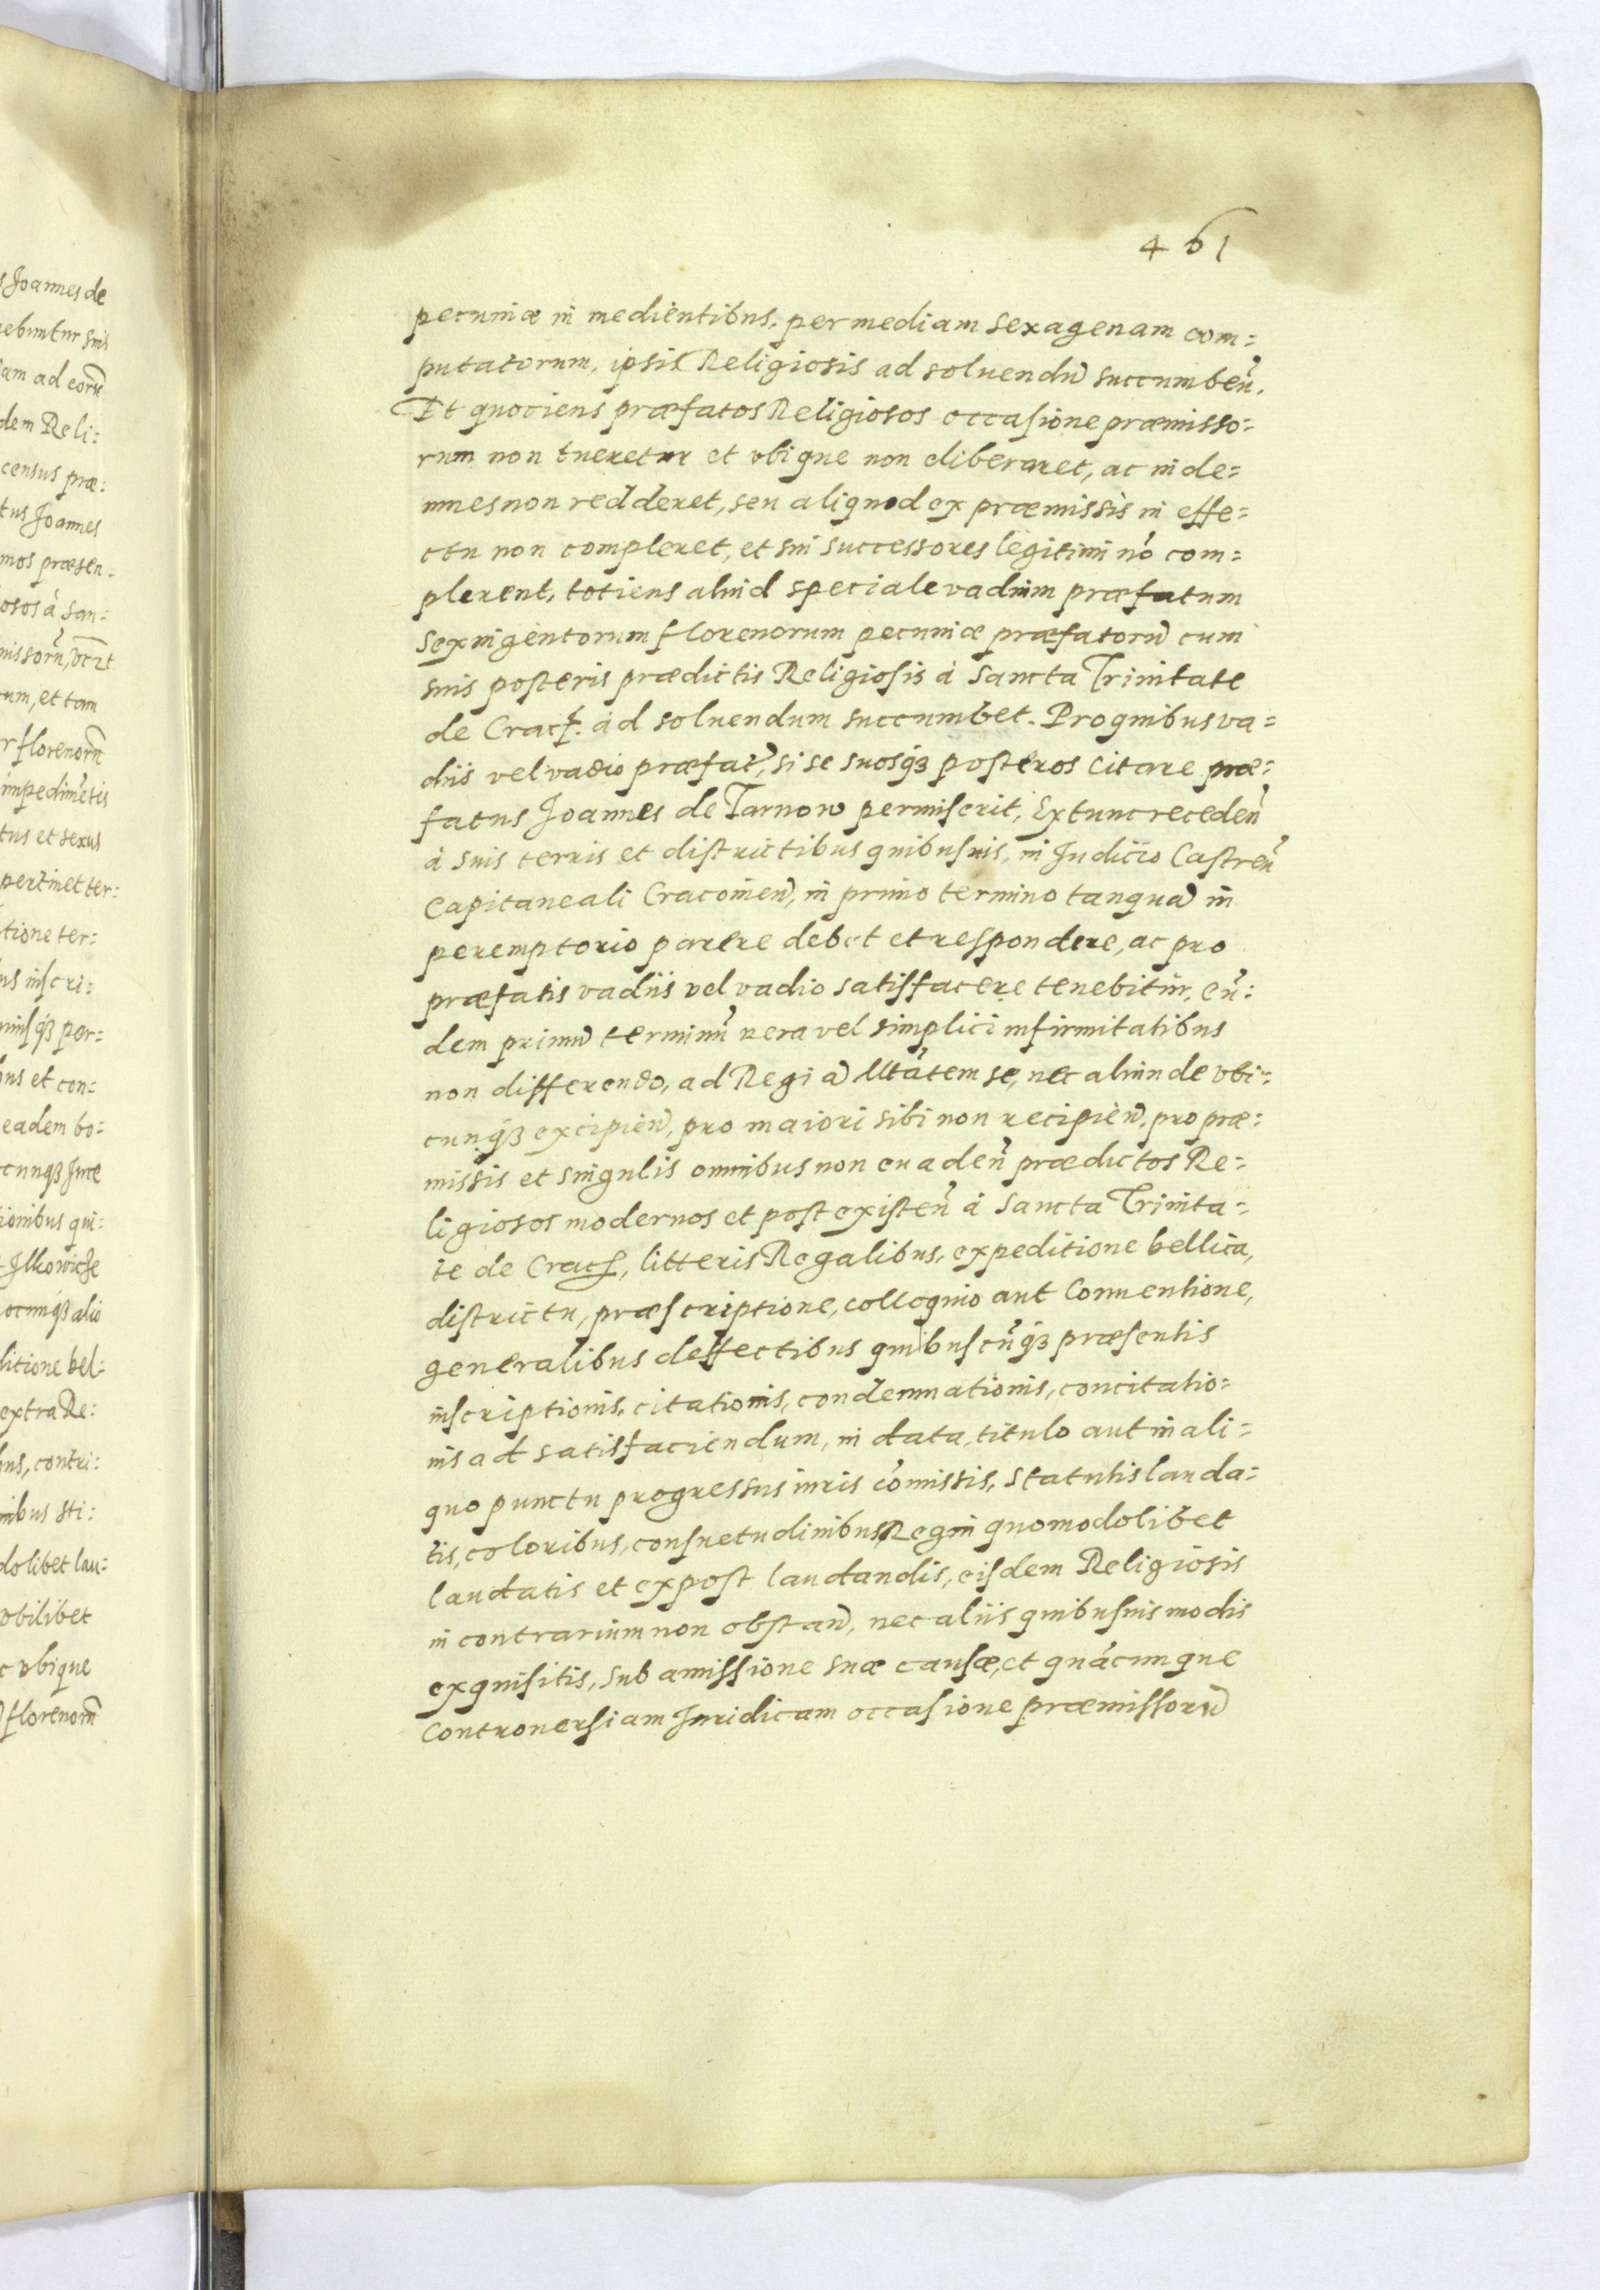 s Joannes de
nebuntur suis
iam ad eorũ
dem Reli:
census præ:
tus Joannes
mos præsen-
osos à San:
missorũ, vt
rum, et tam
r florenorũ
impedimẽtis
tus et sexus
pertinet ter:
tione ter:
us inscri:
par:
us et con:
eadem bo:
cunqȝ Jure
ionibus qui:
ocunqȝ alio
litione bel:
extra Re:
us, contri:
nibus sti:
dolibet lau:
obilibet
c vbique
florenorũ
461
pecuniæ in medientibus, per mediam sexagenam com:
putatorum, ipsis Religiosis ad soluendũ succumbeñ.
Et quociens præfatos Religiosos occasione præmisso:
rum non tueretur et vbique non eliberaret, ac inde:
mnes non redderet, seu aliquod ex præmissis in effe:
ctu non compleret, et sui successores legitimi nõ com:
plerent, totiens aliud speciale vadium præfatum
sexingentorum florenorum pecuniæ præfatorũ cum
suis posteris prædictis Religiosis à Sancta Trinitate
de Crac. ad soluendum succumbet. Pro quibus va:
diis vel vadio præfat, si se suosqȝ posteros citare præ:
fatus Joannes de Tarnow permiserit, Extunc recedeñ
à suis terris et districtibus quibusuis, in Judicio Castreñ
Capitaneali Cracouieñ, in primo termino tanquã in
peremptorio parere debet et respondere, ac pro
præfatis vadiis vel vadio satisfacere tenebitur, eũ:
dem primũ terminũ vera vel simplici infirmitatibus
non differendo, ad Regiã Mtãtem se, nec aliunde vbi:
cunqȝ excipieñ, pro maiori sibi non recipieñ, pro præ:
missis et singulis omnibus non euadeñ prædictos Re:
ligiosos modernos et post existeñ à Sancta Trinita:
te de Crac, litteris Regalibus, expeditione bellica,
districtu, præscriptione, colloquio aut Conuentione,
generalibus deffectibus quibuscũqȝ præsentis
inscriptionis, citationis, condemnationis, concitatio:
nis ad satisfaciendum, in data, titulo aut in ali:
quo punctu progressus iuris cõmissis, statutis lauda:
tis, coloribus, consuetudinibus Regni quomodolibet
laudatis et expost laudandis, eisdem Religiosis
in contrarium non obstañ, nec aliis quibusuis modis
exquisitis, sub amissione suæ causæ, et quácunque
Controuersiam Juridicam occasione præmissorũ